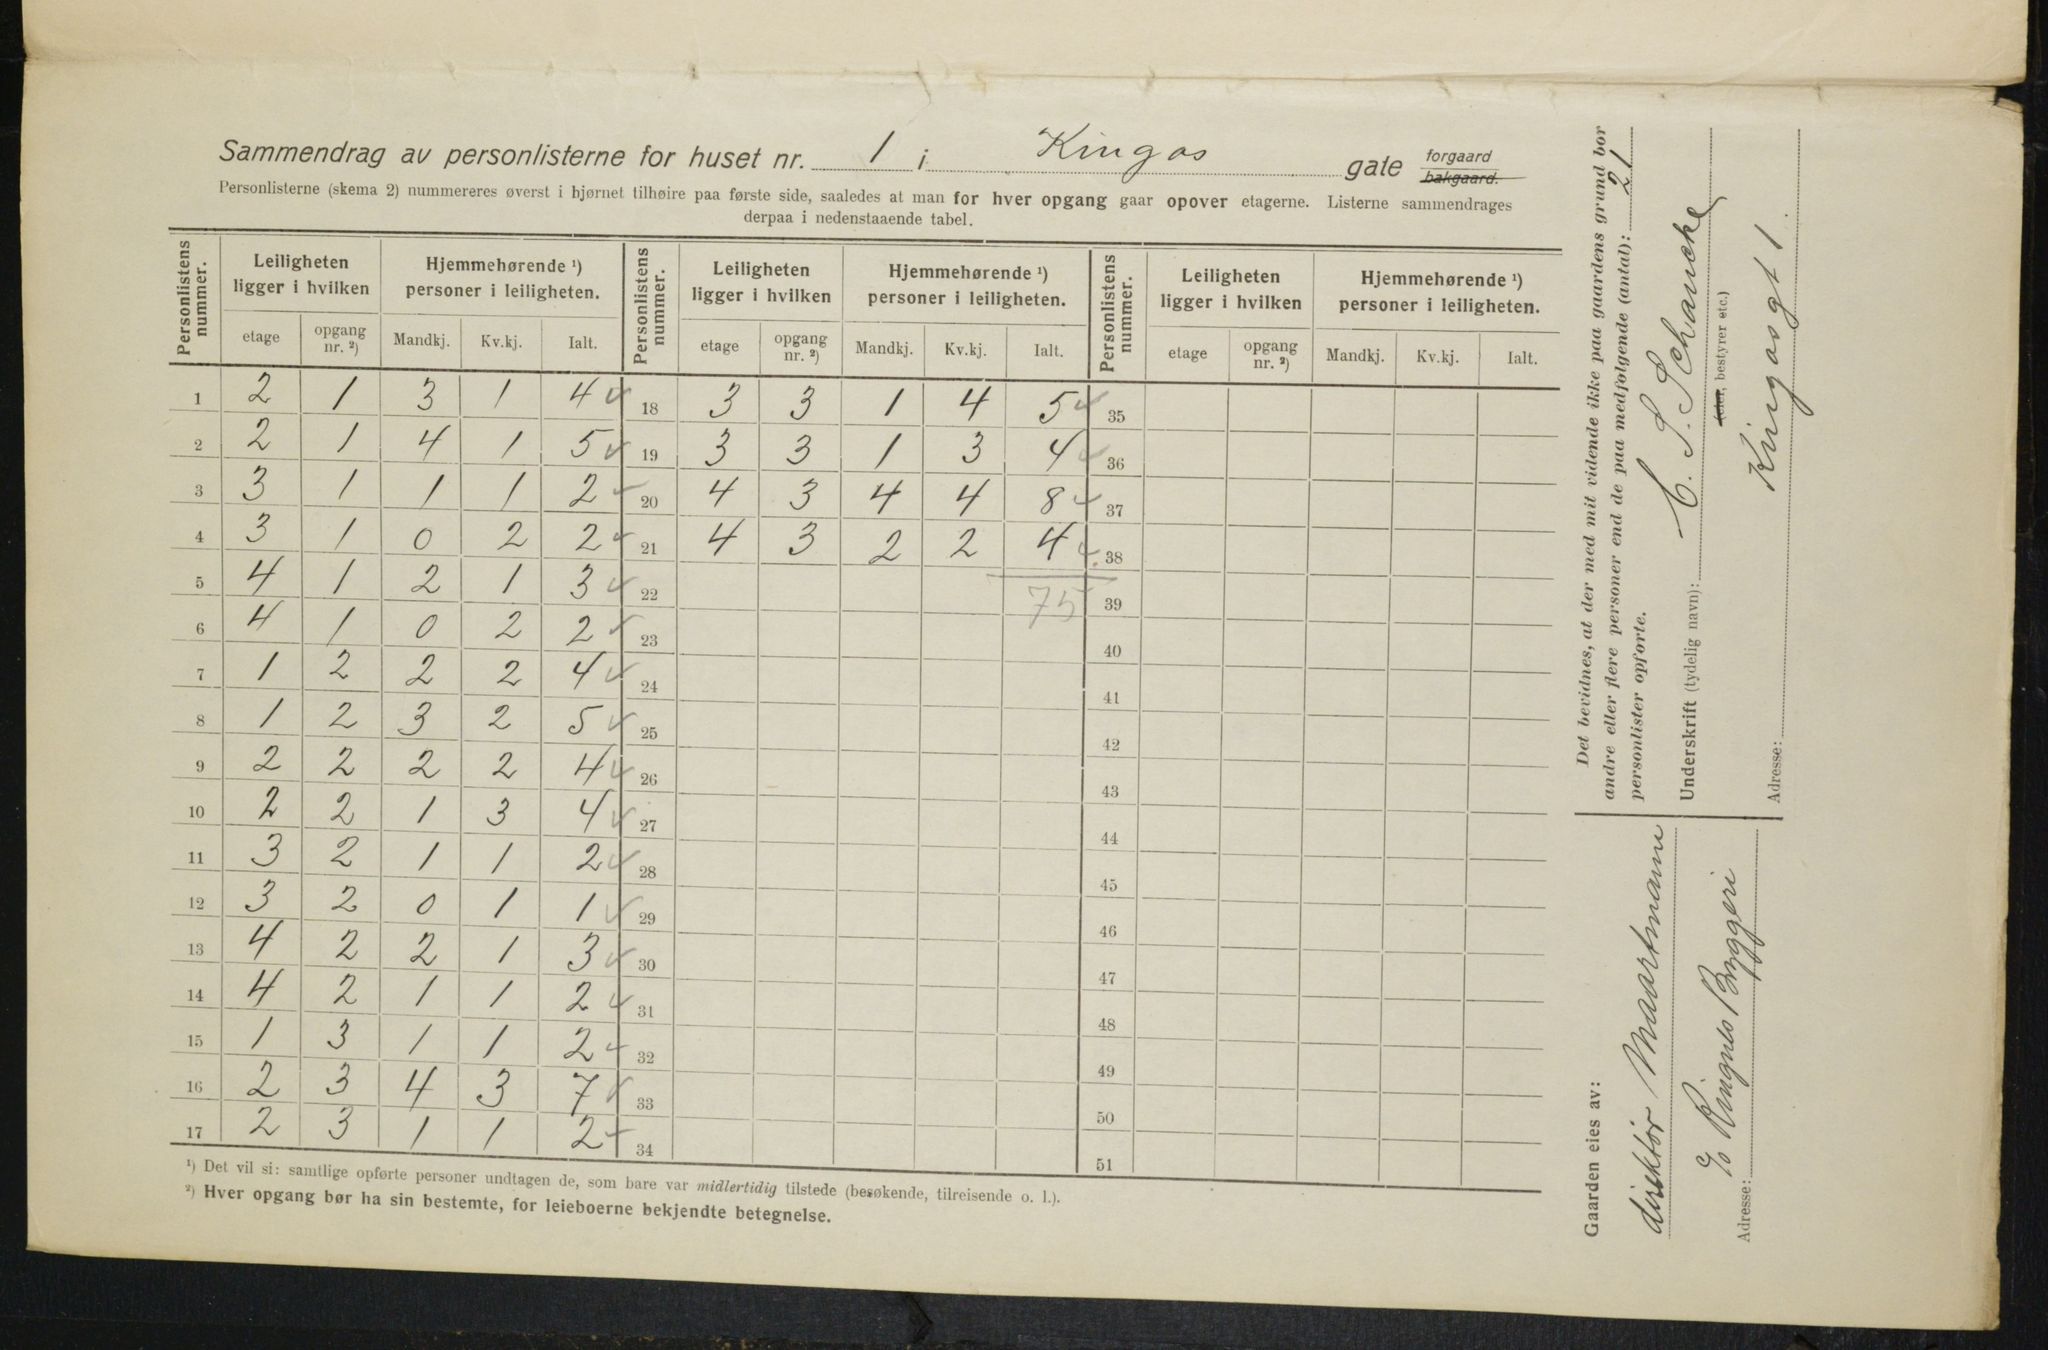 Sammendrag av personlisterne for huset nr. 1 i Kingos gate forgaard
bakgaard.
Personlisterne (skema 2) nummereres øverst i hjørnet tilhøire paa første side, saaledes at man for hver opgang gaar opover etagerne. Listerne sammendrages
derpaa i nedenstaaende tabel.
Personlistens nummer. Leiligheten ligger i hvilken Hjemmehørende ¹) personer i leiligheten. Personlistens nummer. Leiligheten ligger i hvilken Hjemmehørende ¹) personer i leiligheten. Personlistens nummer. Leiligheten ligger i hvilken Hjemmehørende ¹) personer i leiligheten.
etage opgang nr. ²) Mandkj. Kv.kj. Ialt. etage opgang nr. ²) Mandkj. Kv.kj. Ialt. etage opgang nr. ²) Mandkj. Kv.kj. Ialt.
1 2 1 3 1 4 18 3 3 1 4 5 35
2 2 1 4 1 5 19 3 3 1 3 4 36
3 3 1 1 1 2 20 4 3 4 4 8 37
4 3 1 0 2 2 21 4 3 2 2 4 38
5 4 1 2 1 3 22 75 39
6 4 1 0 2 2 23 40
7 1 2 2 2 4 24 41
8 1 2 3 2 5 25 42
9 2 2 2 2 4 26 43
10 2 2 1 3 4 27 44
11 3 2 1 1 2 28 45
12 3 2 0 1 1 29 46
13 4 2 2 1 3 30 47
14 4 2 1 1 2 31 48
15 1 3 1 1 2 32 49
16 2 3 4 3 7 33 50
17 2 3 1 1 2 34 51
¹) Det vil si: samtlige opførte personer undtagen de, som bare var midlertidig tilstede (besøkende, tilreisende o. l.).
²) Hver opgang bør ha sin bestemte, for leieboerne bekjendte betegnelse.
Det bevidnes, at der med mit vidende ikke paa gaardens grund bor
andre eller flere personer end de paa medfølgende (antal): 21
personlister opførte.
Underskrift (tydelig navn): C. S. Schancke
(eier, bestyrer etc.)
Adresse: Kingosgt 1.
Gaarden eies av:
direktør Maartmann
Adresse: c/o Ringnes Bryggeri